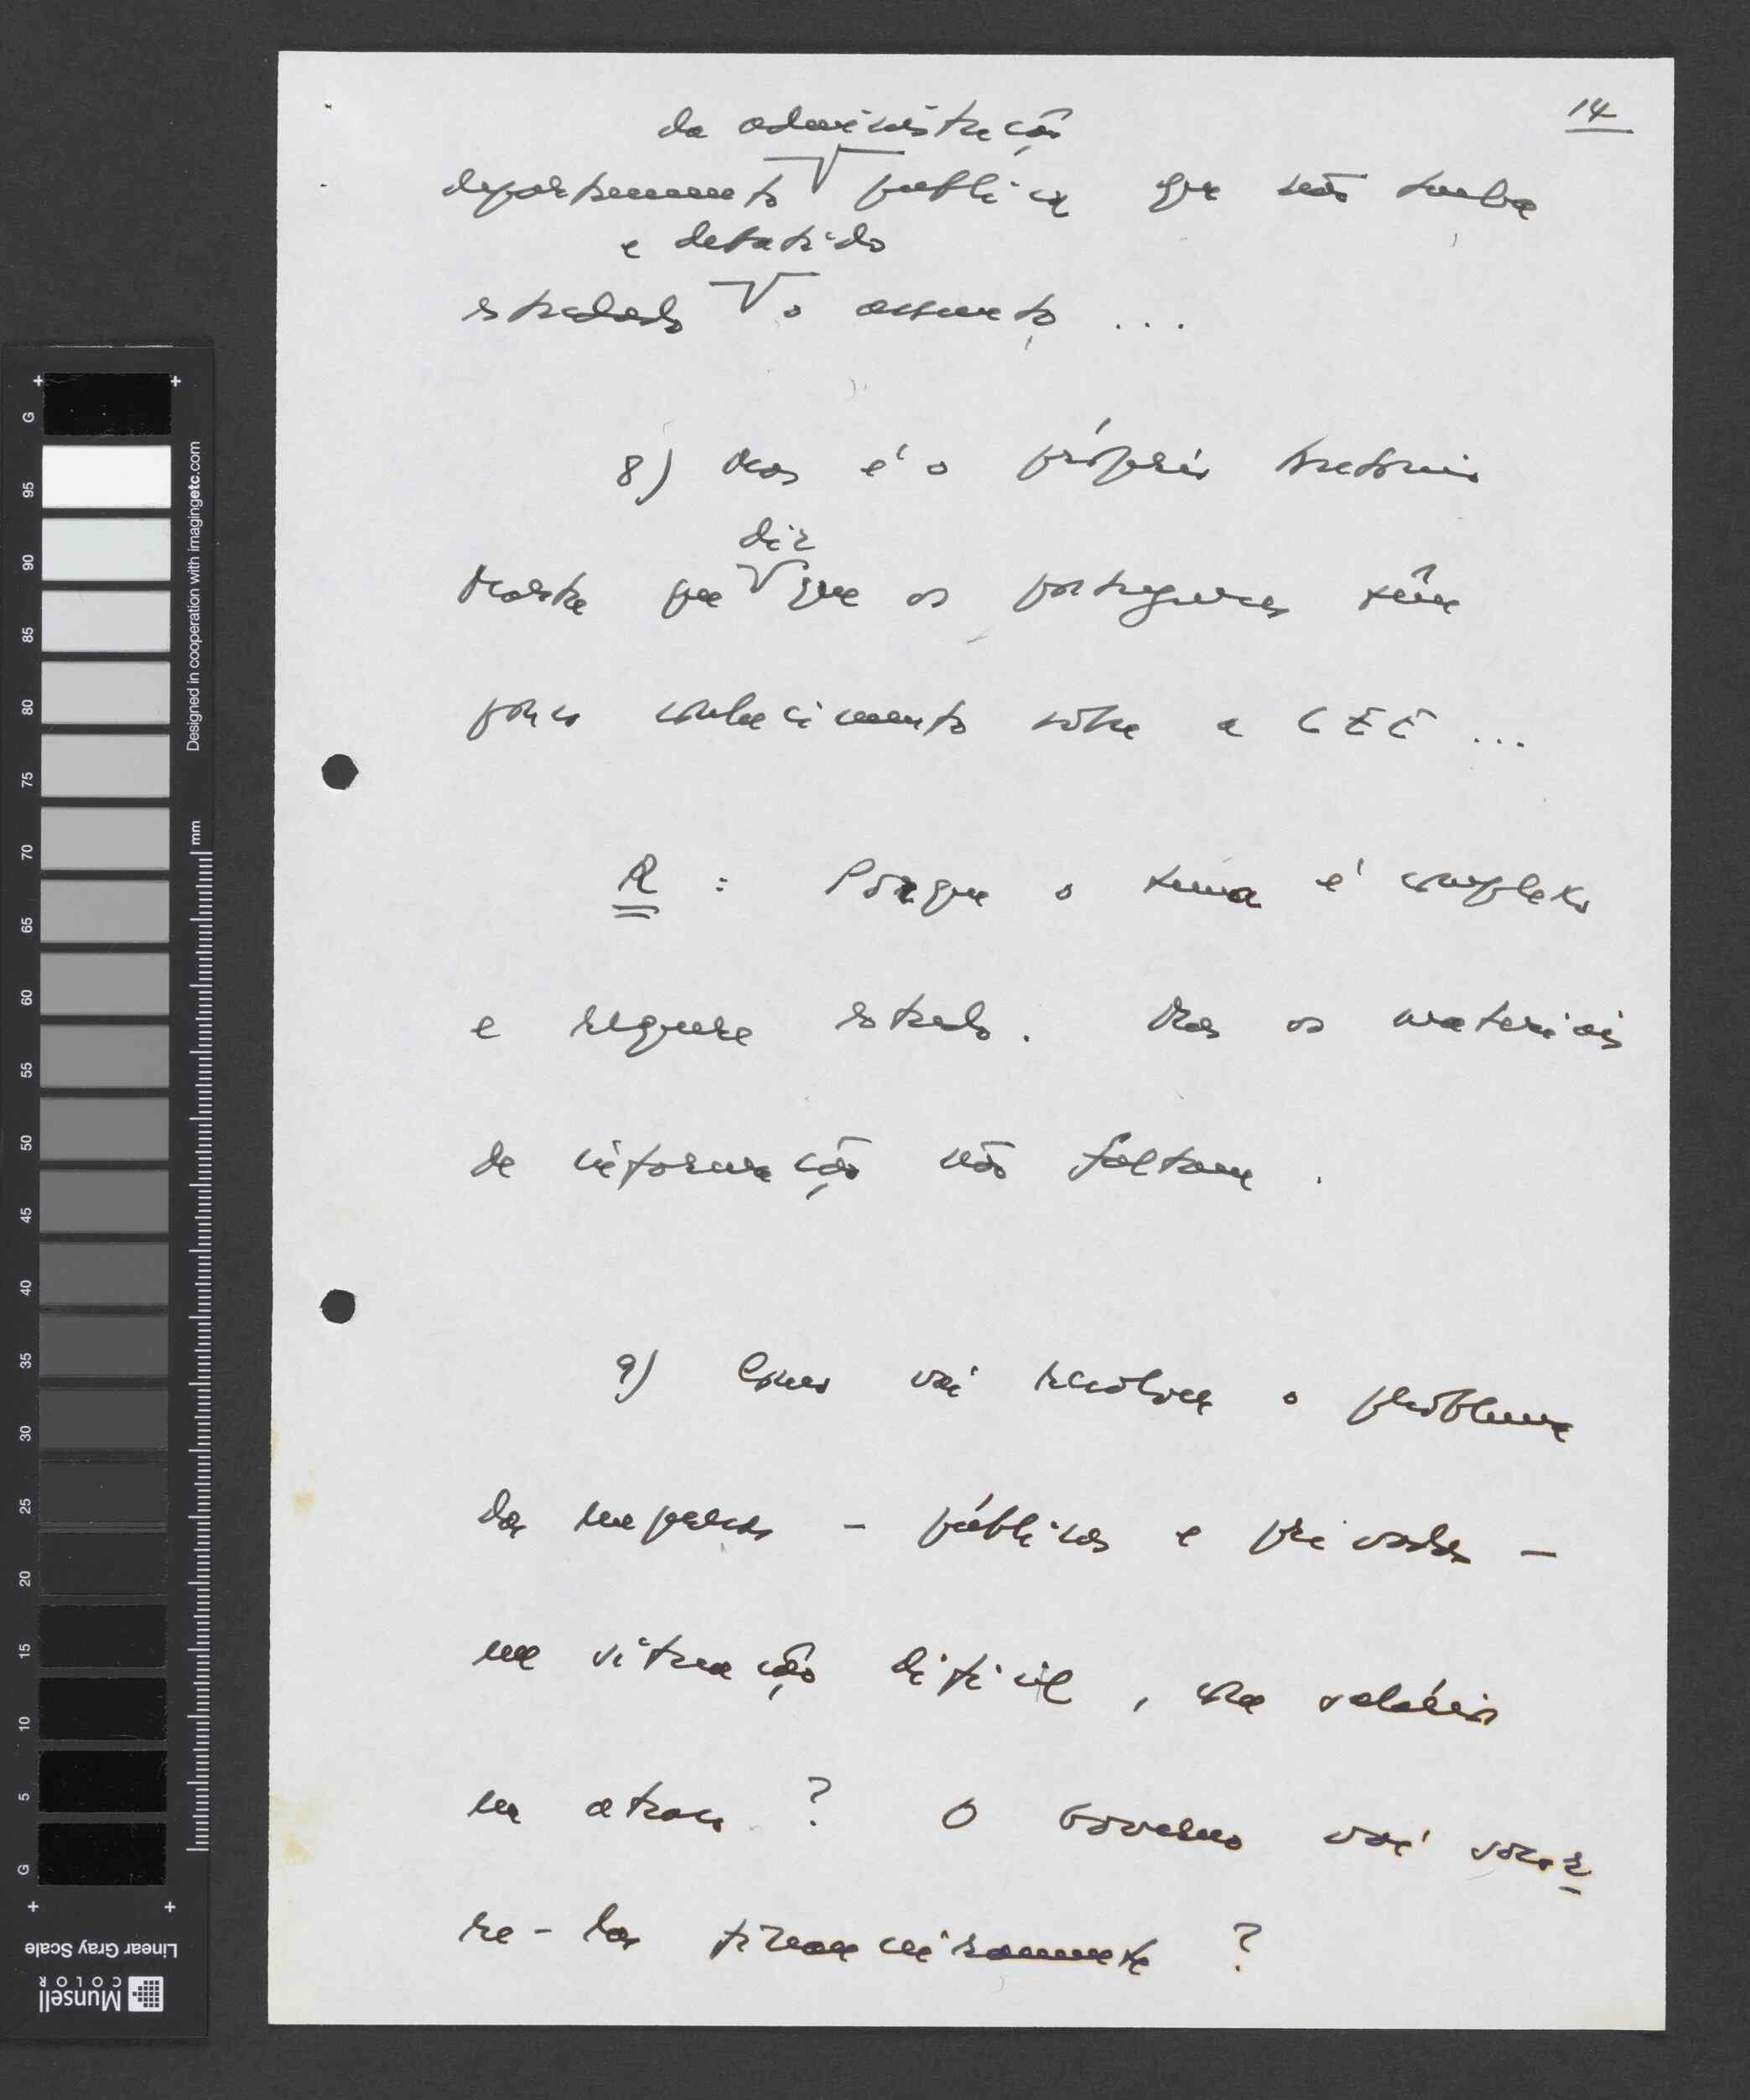 14
da administração
departamento pública que não tenha
e debatido
estudado o assunto ...
8) Mas é o próprio António
diz
Marta que que os portugueses têm
pouco conhecimento sobre a CEE ...
R : Porque o tema é complexo
e requere estudo. Mas os materiais
de informação não faltam.
9) Como vai resolver o problema
das empresas - públicas e privadas -
em situação difícil, com salários
em atraso ? O Governo vai socor
re-las financeiramente ?
G 95 90 85 80 75 70 65 60 55 50 45 40 35 30 25 20 15 10 5 G
Designed in cooperation with imagingetc.com
mm
Linear Gray Scale
Munsell
COLOR